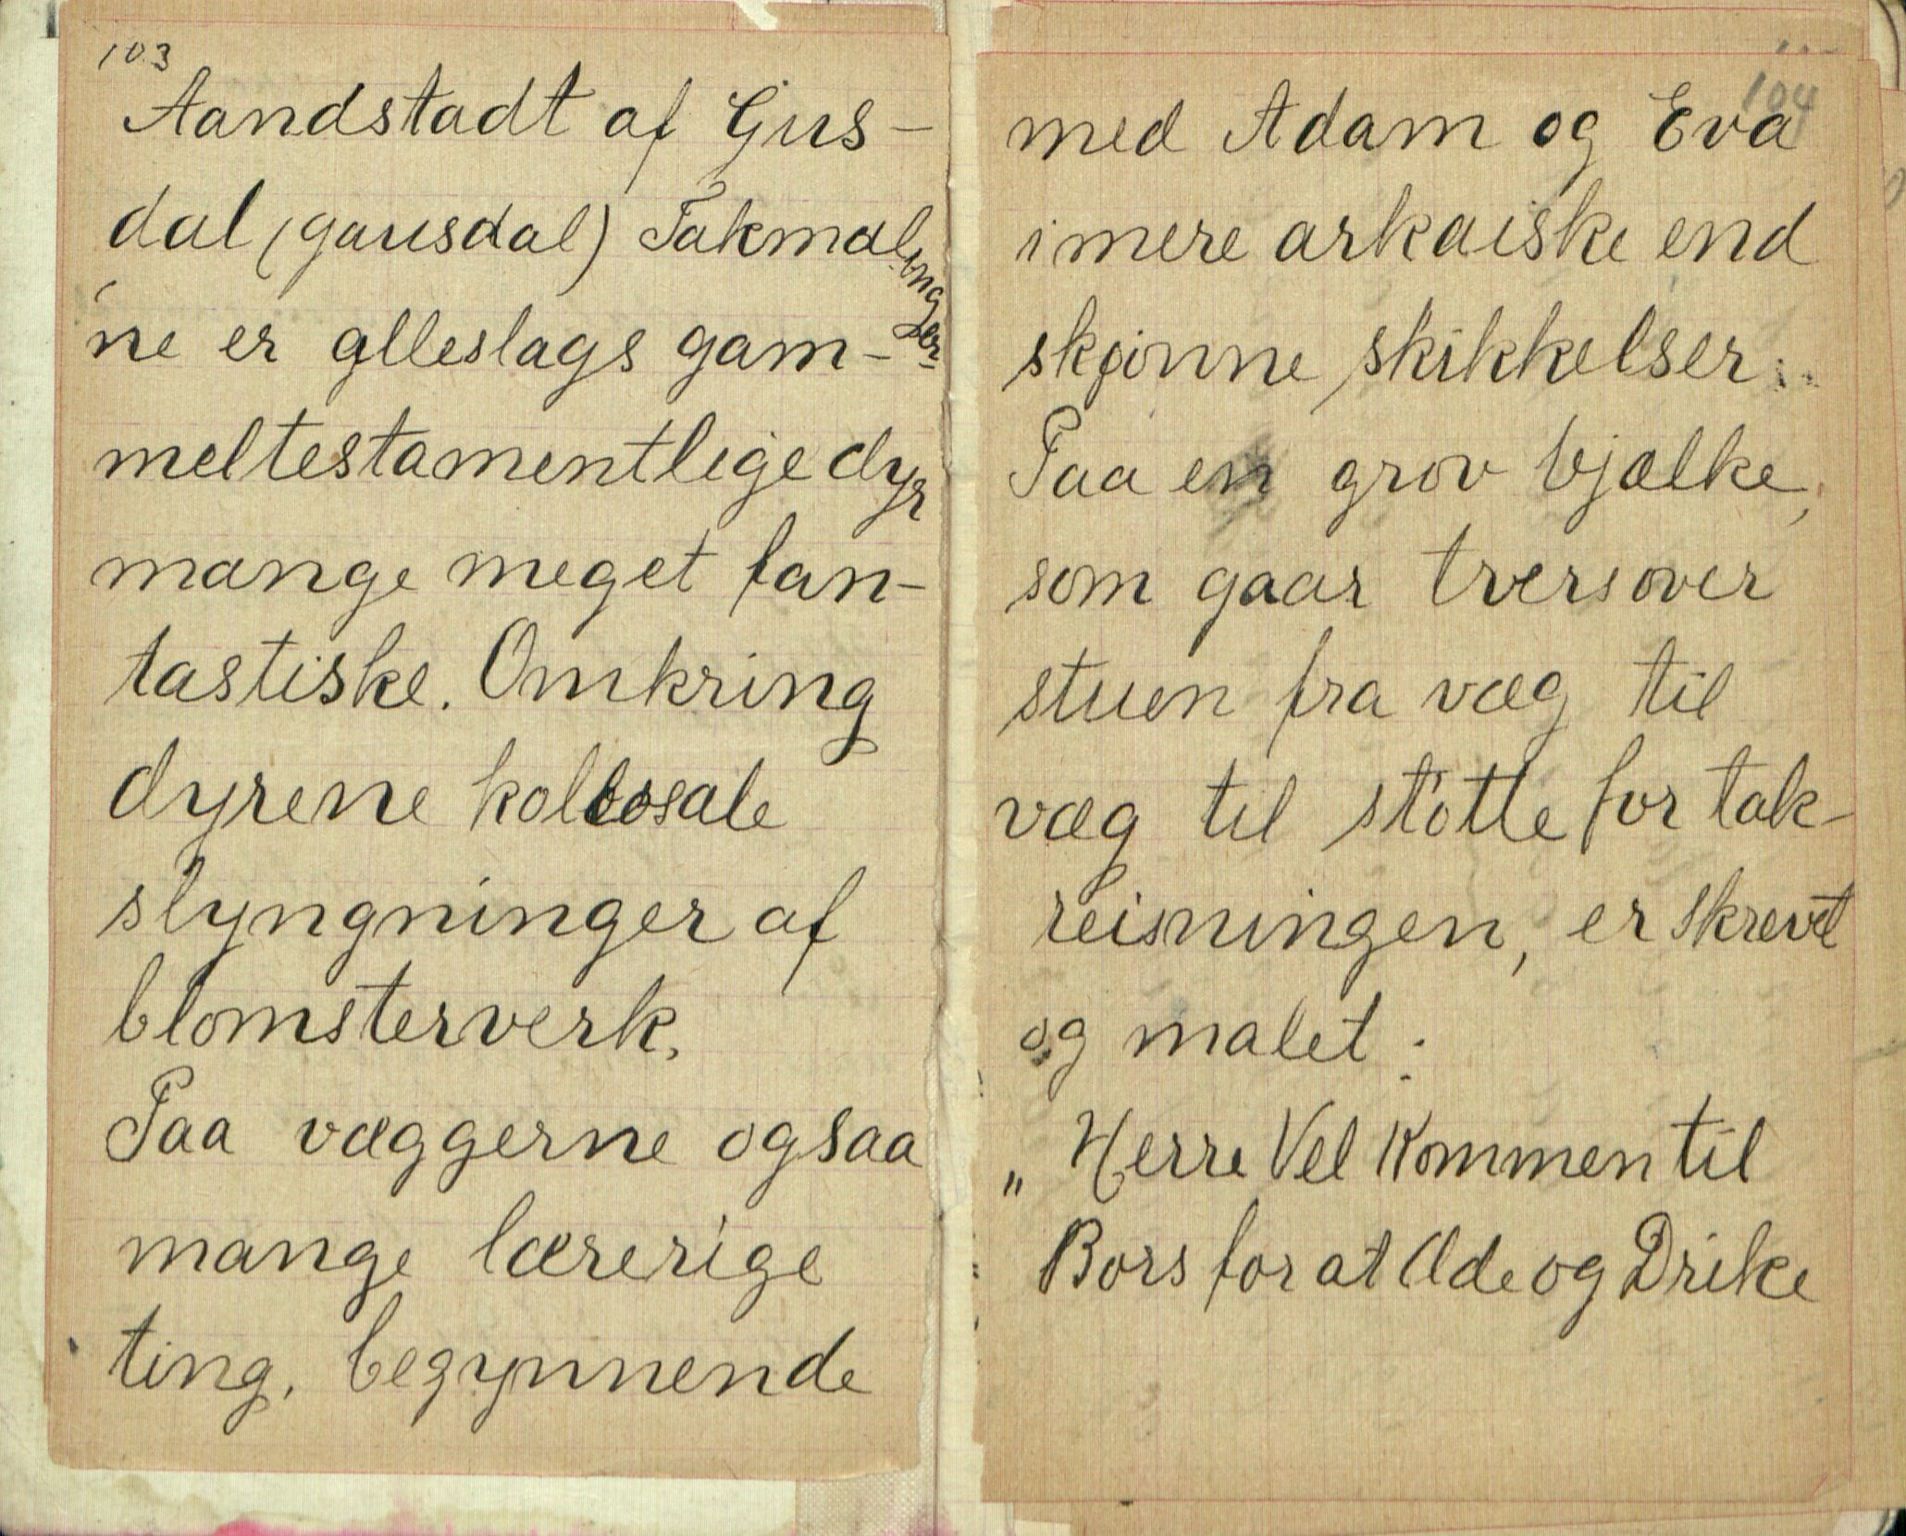 103
Aandstadt af Gus-
dal (gausdal) Takmalinger-
ne er alleslags gam-
meltestamentlige dyr
mange meget fan-
tastiske. Omkring
dyrene kollosale
slyngninger af
blomsterverk.
Paa væggerne ogsaa
mange lærerige
ting, begynnende
104
med Adam og Eva
i mere arkaiske end
skjønne skikkelser.
Paa en grov bjælke,
som gaar tversover
stuen fra væg til
væg til støtte for tak-
reisningen, er skrevet
og malet:
„Herre Vel Kommen til
Bors for at Æde og Drike